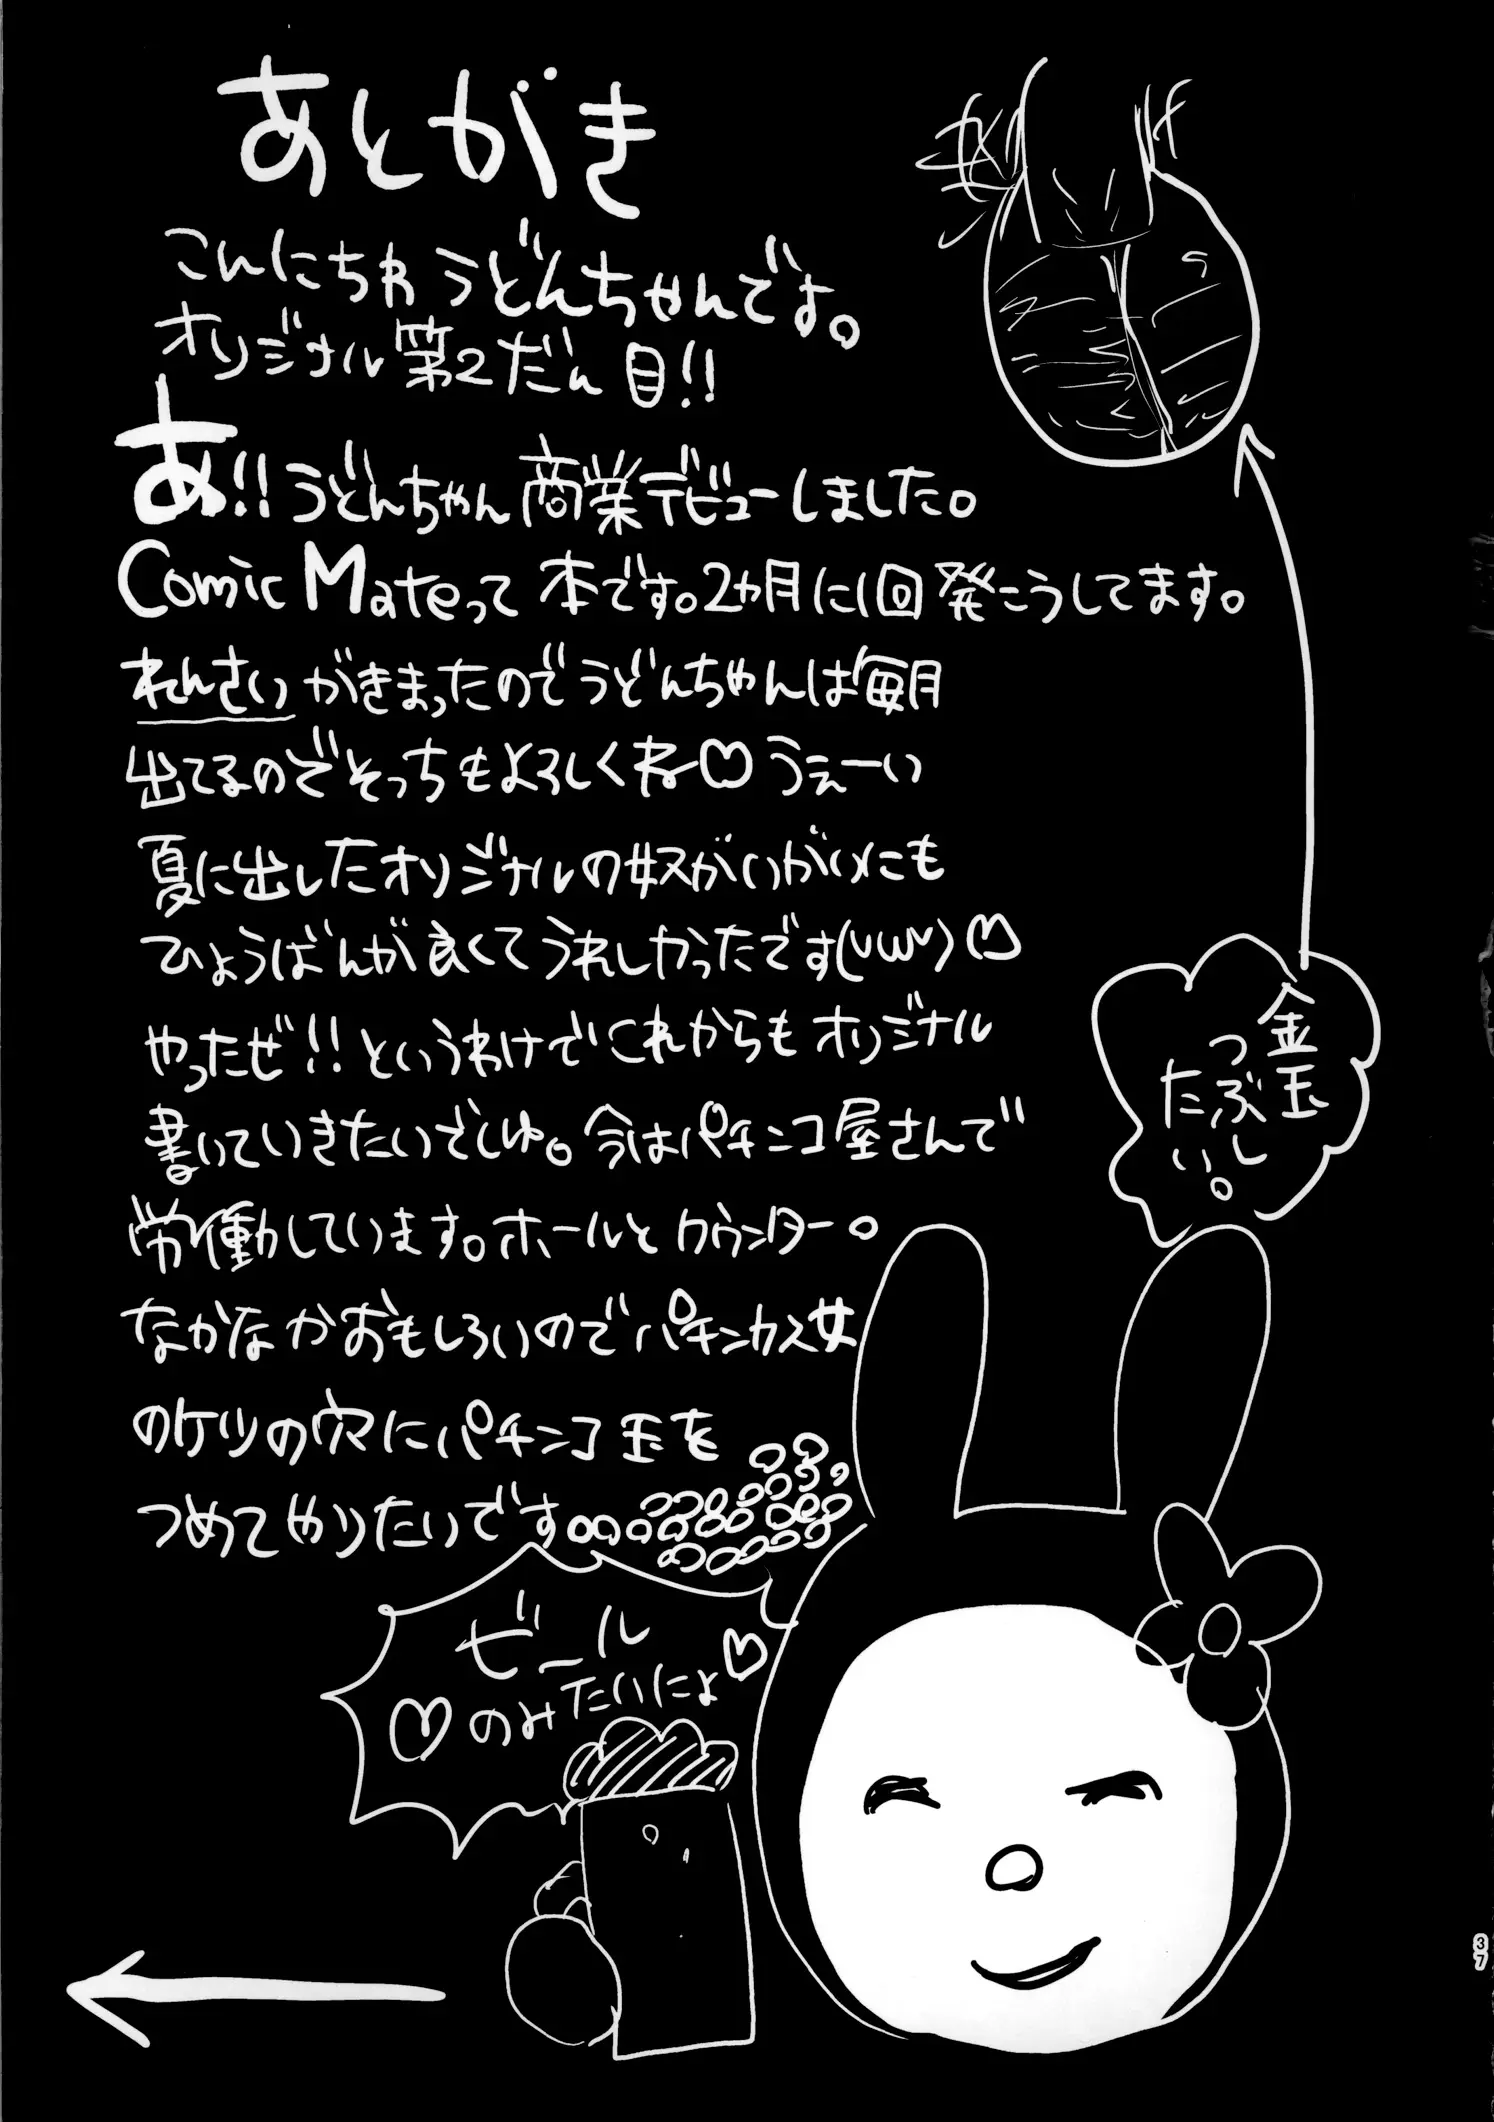 あとがき
こんにちわ うどんちゃんです。
オリジナル第2だん目!!
あ!!うどんちゃん商業デビューしました。
Comic Mateって本です。2カ月に1回発こうしてます。
れんさいがきまったのでうどんちゃんは毎月
出てるのでそっちもよろしくね♡うぇーい
夏に出したオリジナルの奴がいがいにも
ひょうばんが良くてうれしかったです(^ω^)♡
やったぜ!!というわけでこれからもオリジナル
書いていきたいでしゅ。今はパチンコ屋さんで
労働しています。ホールとカウンター。
なかなかおもしろいのでパチンカス女
のケツの穴にパチンコ玉を
つめてやりたいです
金玉
つぶし
たい。
ビール
♡のみたいにょ♡
37